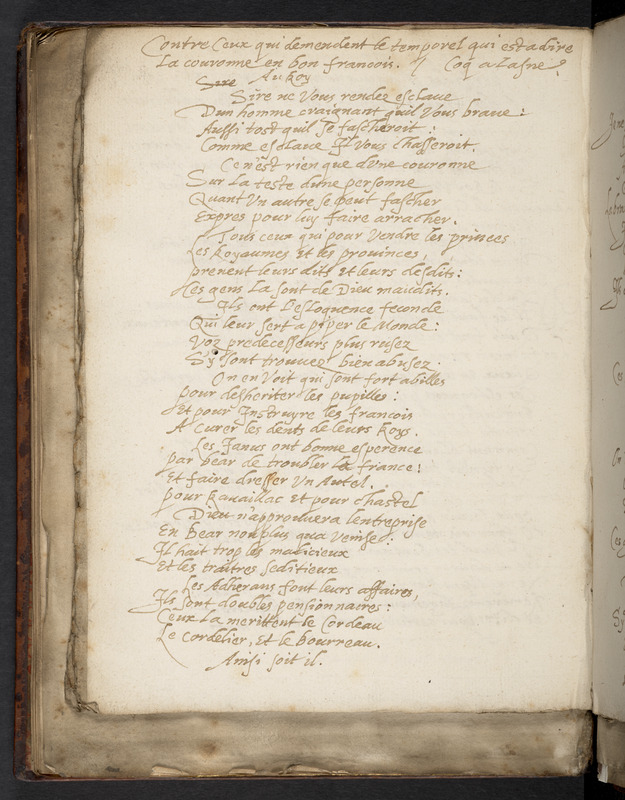 Contre Ceux qui demendent le temporel qui est a dire
La couronne en bon francois. // Coq a Lasne?
Sire Au Roy
Sire ne vous rendez esclave
Dun homme craignant quil vous brave:
Aussi tost quil se fascheroit:
Comme esclave Il vous chasseroit.
Ce n'est rien que d'une couronne
Sur la teste dune personne
Quant un autre se peut fascher
Expres pour luy faire arracher.
Tous ceux qui pour vendre les princes
Les Royaumes Et les provinces,
prenent leurs dits Et leurs desdits:
Ces gens La sont de Dieu maudits.
Ils ont L'esloquence feconde
Qui leur sert a piper le Monde:
Voz predecesseurs plus rusez
S'y sont trouvez bien abusez.
On en voit qui sont fort abilles
pour desheriter les pupilles:
Et pour Instruyre les francois
A Curer les dents de leurs Roys.
Les Janus ont bonne esperence
par bear de troubler la france:
Et faire dresser un Autel.
pour Ravaillac Et pour Chastel
Dieu n'approuvera lentreprise
En Bear non plus qua Venise:
Il hait trop les malicieux
Et les traitres seditieux
Les Adherans font leurs affaires,
Ils sont doubles pensionnaires:
Ceux La merittent le Cordeau
Le Cordelier, Et le bourreau.
Ainsi soit il.